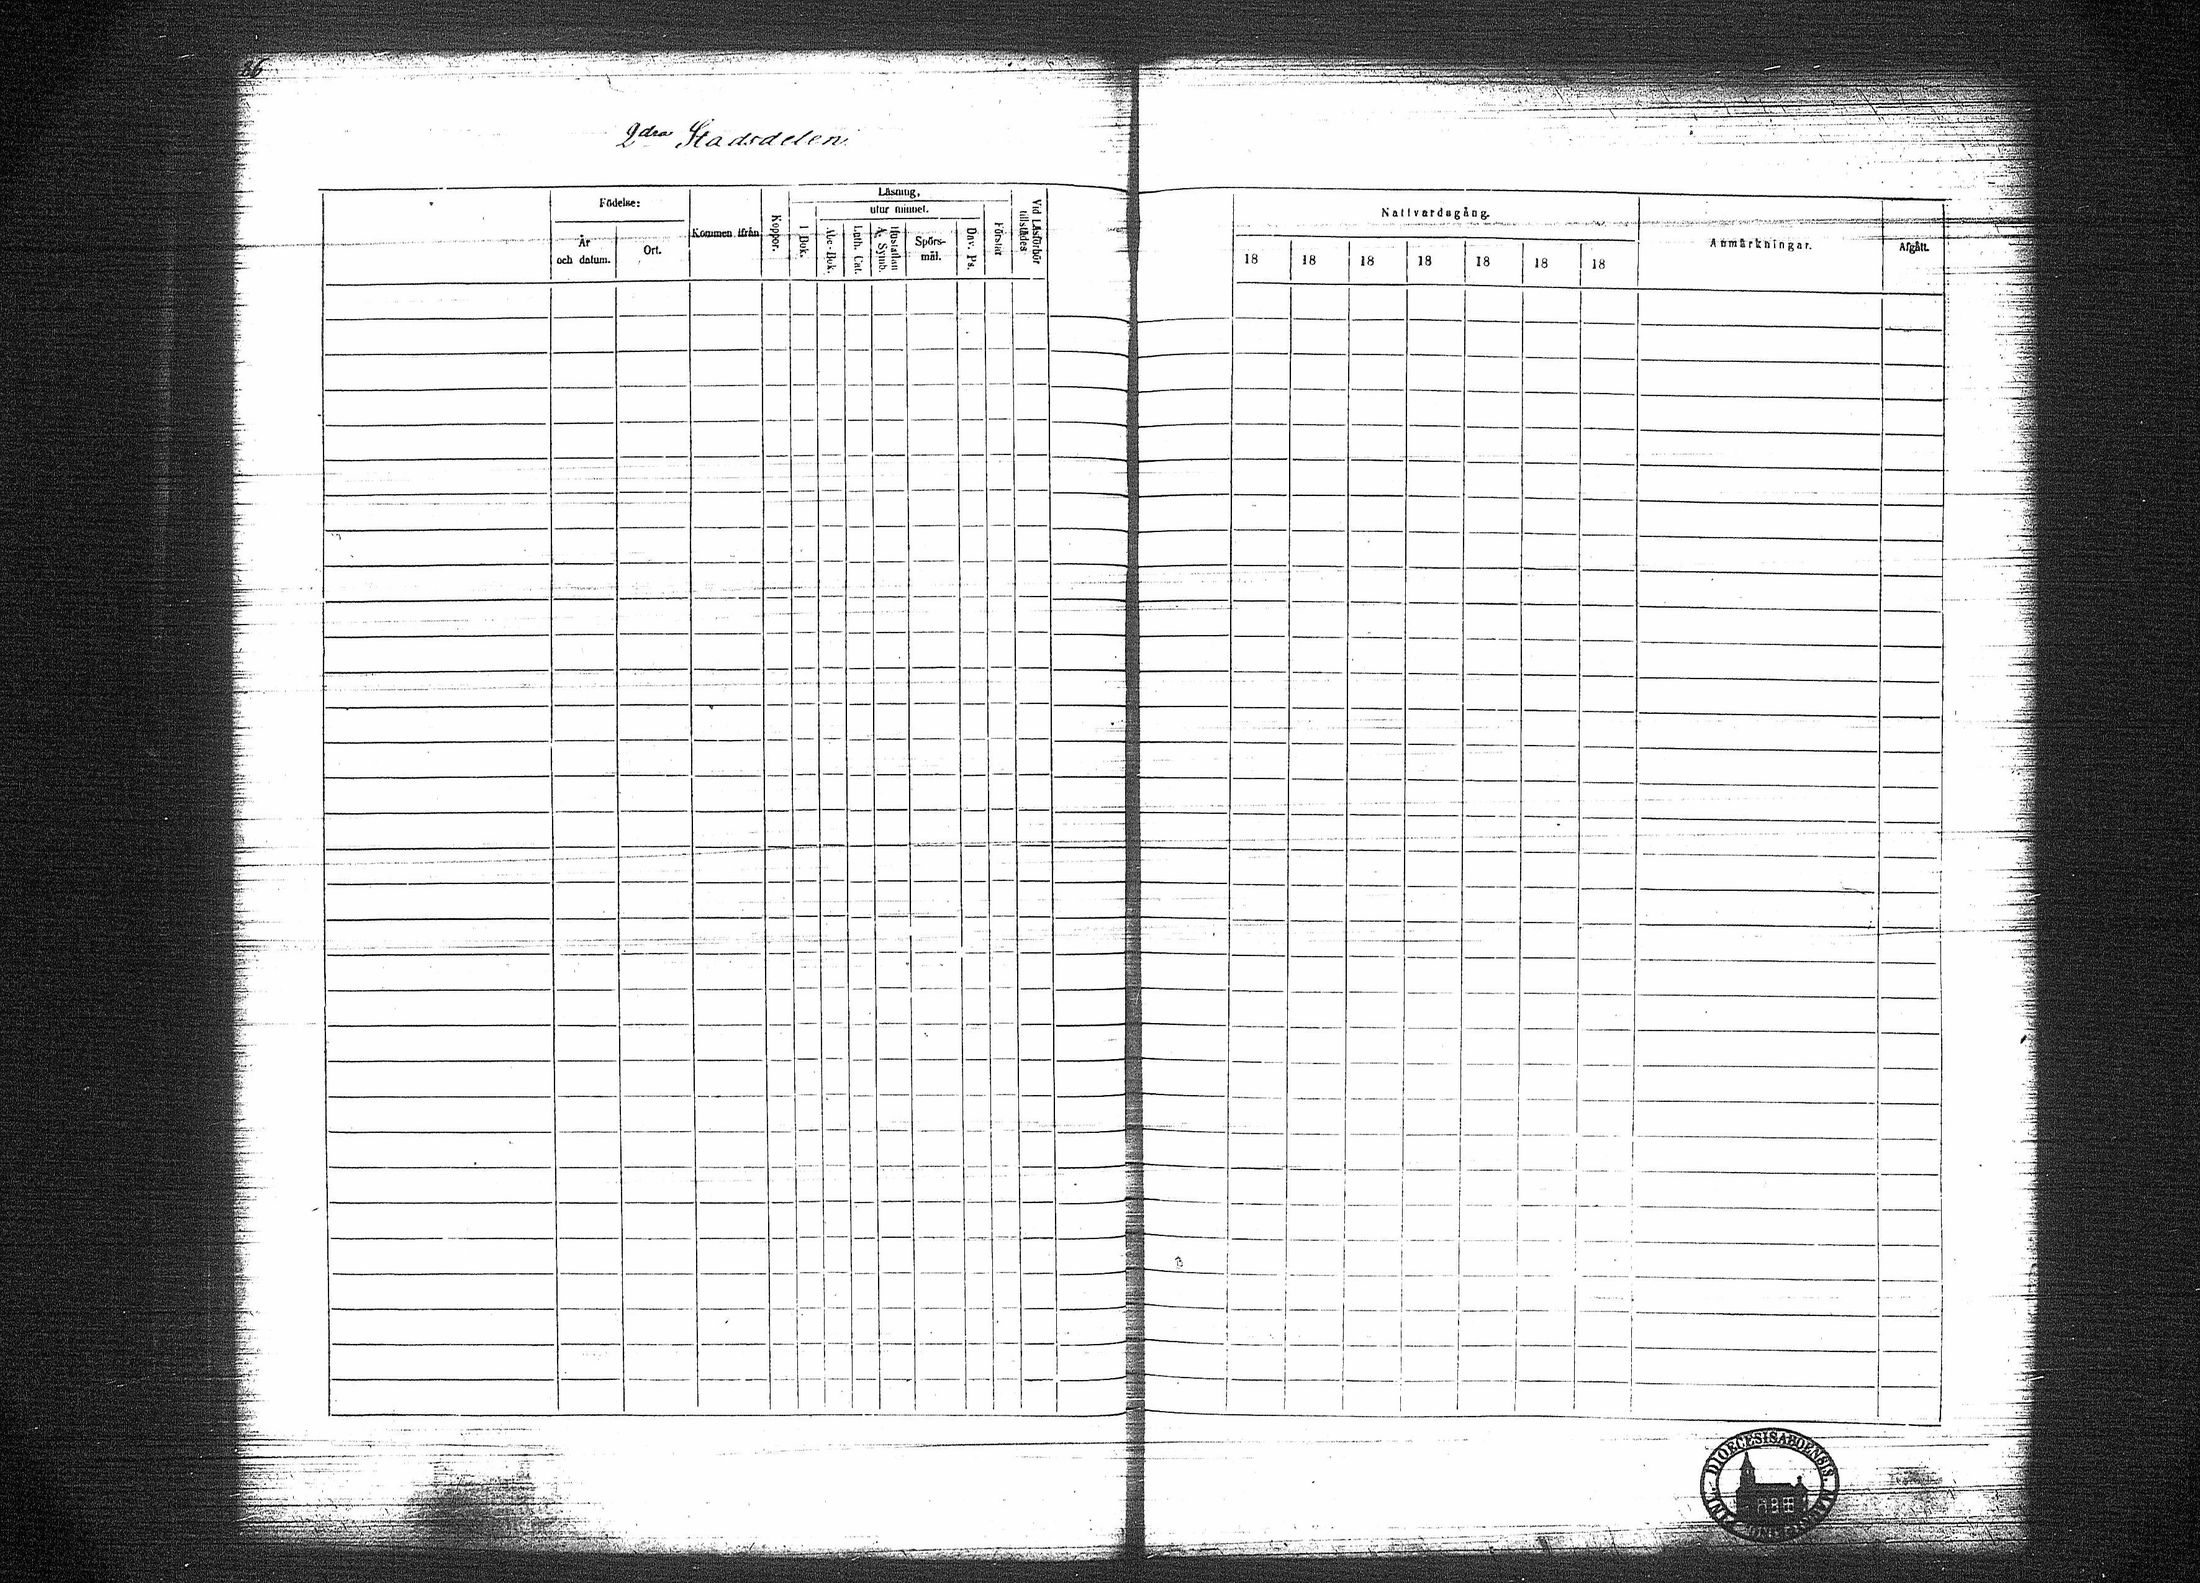 2dra Stadsdelen.
Födelse:
År
och datum.
Ort.
Kommen ifrån
Koppor.
Läsning,
I Bok.
utur minnet.
Abc-Bok.
Luth. Cat.
Hustaflan
A. Symb.
Spörs-
mål.
Dav. Ps.
Förstår
Vid Läsförhör
tillstädes
Nattvardsgång.
18 18 18 18 18 18 18
Anmärkningar.
Afgått.
DIOECESIS ABOENSIS